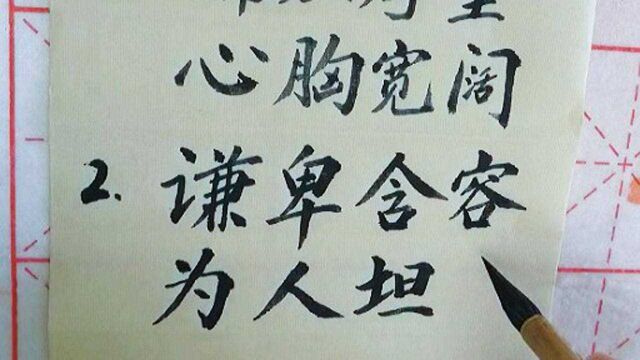 心胸宽阔
2. 谦卑含容
为人坦